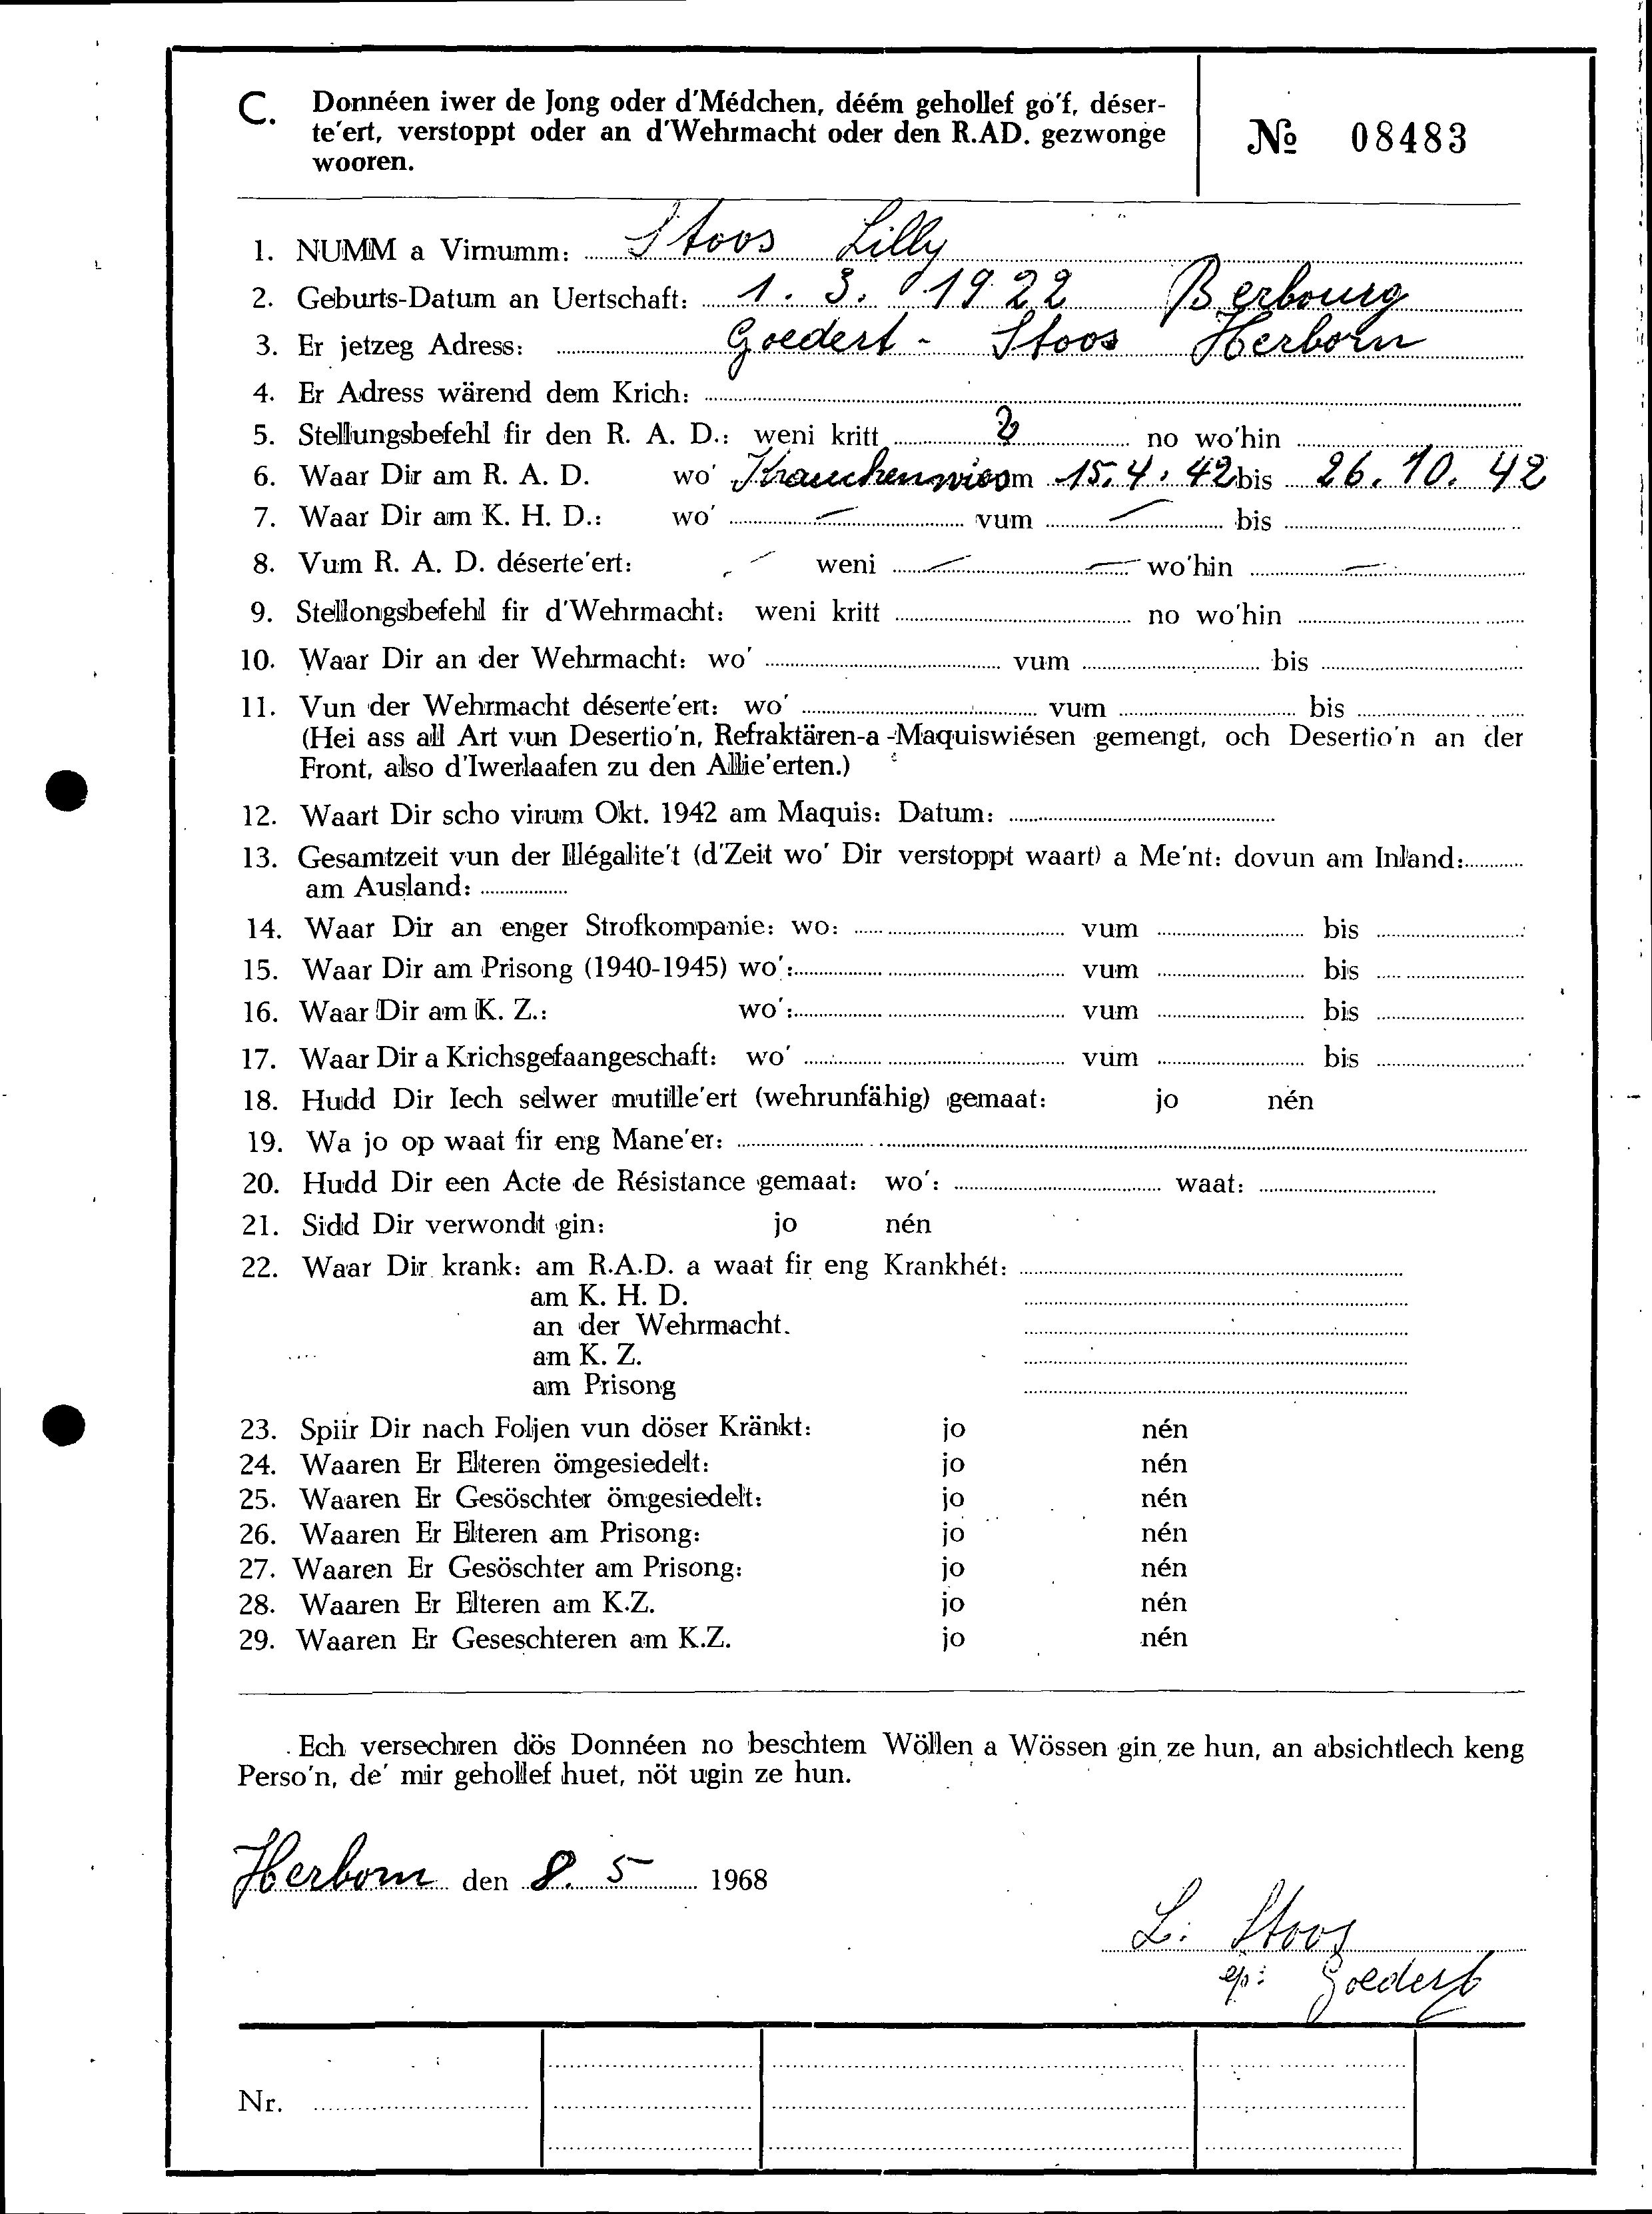 C. Donnéen iwer de Jong oder d'Médchen, déém gehollef go'f, déser-
te'ert, verstoppt oder an d'Wehrmacht oder den R.AD. gezwonge
wooren.
№ 08483
1. NUMM a Virnumm: Stoos Lilly
2. Geburts-Datum an Uertschaft: 1. 3. 1922 Berbourg
3. Er jetzeg Adress: Goedert - Stoos Herborn
4. Er Adress wärend dem Krich:
5. Stellungsbefehl fir den R. A. D.: weni kritt no wo'hin
6. Waar Dir am R. A. D. wo' Krauchenwies vum 15. 4. 42 bis 26. 10. 42
7. Waar Dir am K. H. D.: wo' — vum — bis
8. Vum R. A. D. déserte'ert: — weni — — wo'hin —
9. Stellongsbefehl fir d'Wehrmacht: weni kritt no wo'hin
10. Waar Dir an der Wehrmacht: wo' vum bis
11. Vun der Wehrmacht déserte'ert: wo' vum bis
(Hei ass all Art vun Desertio'n, Refraktären-a-Maquiswiésen gemengt, och Desertio'n an der
Front, also d'Iwerlaafen zu den Allie'erten.)
12. Waart Dir scho virum Okt. 1942 am Maquis: Datum:
13. Gesamtzeit vun der Illégalite't (d'Zeit wo' Dir verstoppt waart) a Me'nt: dovun am Inland:
am Ausland:
14. Waar Dir an enger Strofkompanie: wo: vum bis
15. Waar Dir am Prisong (1940-1945) wo': vum bis
16. Waar Dir am K. Z.: wo': vum bis
17. Waar Dir a Krichsgefaangeschaft: wo' vum bis
18. Hudd Dir Iech selwer mutille'ert (wehrunfähig) gemaat: jo nén
19. Wa jo op waat fir eng Mane'er:
20. Hudd Dir een Acte de Résistance gemaat: wo': waat:
21. Sidd Dir verwondt gin: jo nén
22. Waar Dir krank: am R.A.D. a waat fir eng Krankhét:
am K. H. D.
an der Wehrmacht.
am K. Z.
am Prisong
23. Spiir Dir nach Foljen vun döser Kränkt: jo nén
24. Waaren Er Elteren ömgesiedelt: jo nén
25. Waaren Er Gesöschter ömgesiedelt: jo nén
26. Waaren Er Elteren am Prisong: jo nén
27. Waaren Er Gesöschter am Prisong: jo nén
28. Waaren Er Elteren am K.Z. jo nén
29. Waaren Er Geseschteren am K.Z. jo nén
Ech versechren dös Donnéen no beschtem Wöllen a Wössen gin ze hun, an absichtlech keng
Perso'n, de' mir gehollef huet, nöt ugin ze hun.
Herborn den 8. 5 1968
L. Stoos
ép: Goedert
Nr.